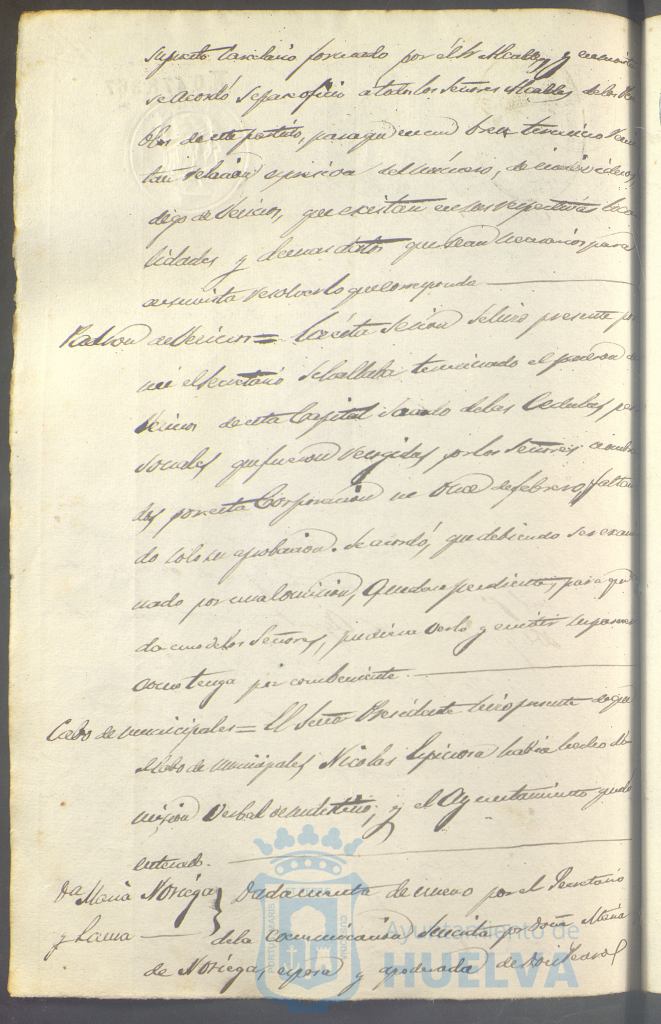 supuesto carcelario formado por el Sr Alcalde y
se acordó se pase oficio a todos los Señores Alcaldes de los
blos de este partido, para que en un breve termino
tan relación espresiva del número, de individuos
digo de Vecinos, que existan en sus respectivas loca
lidades y demas datos que sean necesarios para
en su vista resolver lo que corresponda
Padron de Vecinos = En esta Sesion se hizo presente por
mi el Secretario se hallaba terminado el padron de
Vecinos de esta Capital sacado de las Cedulas per
sonales que fueron recogidas por los Señores nombra
dos por esta Corporacion en Once de febrero faltan
do solo su aprobacion. Se acordó, que debiendo ser exami
nado por una Comision, quedase pendiente, para que
da uno de los Señores, pudiera verlo y emitir su parecer
como tenga por combeniente.
Cabo de municipales = El Señor Presidente hizo presente que
el Cabo de Municipales Nicolas Espinosa habia hecho di
mision Verbal de su destino; y el Ayuntamiento quedó
enterado.
Da Maria Noriega } Dada cuenta de nuevo por el Secretario
y Lama de la Comunicación suscrita por doña Maria
de Noriega, esposa y apoderada de Don
Ayuntamiento de
HUELVA